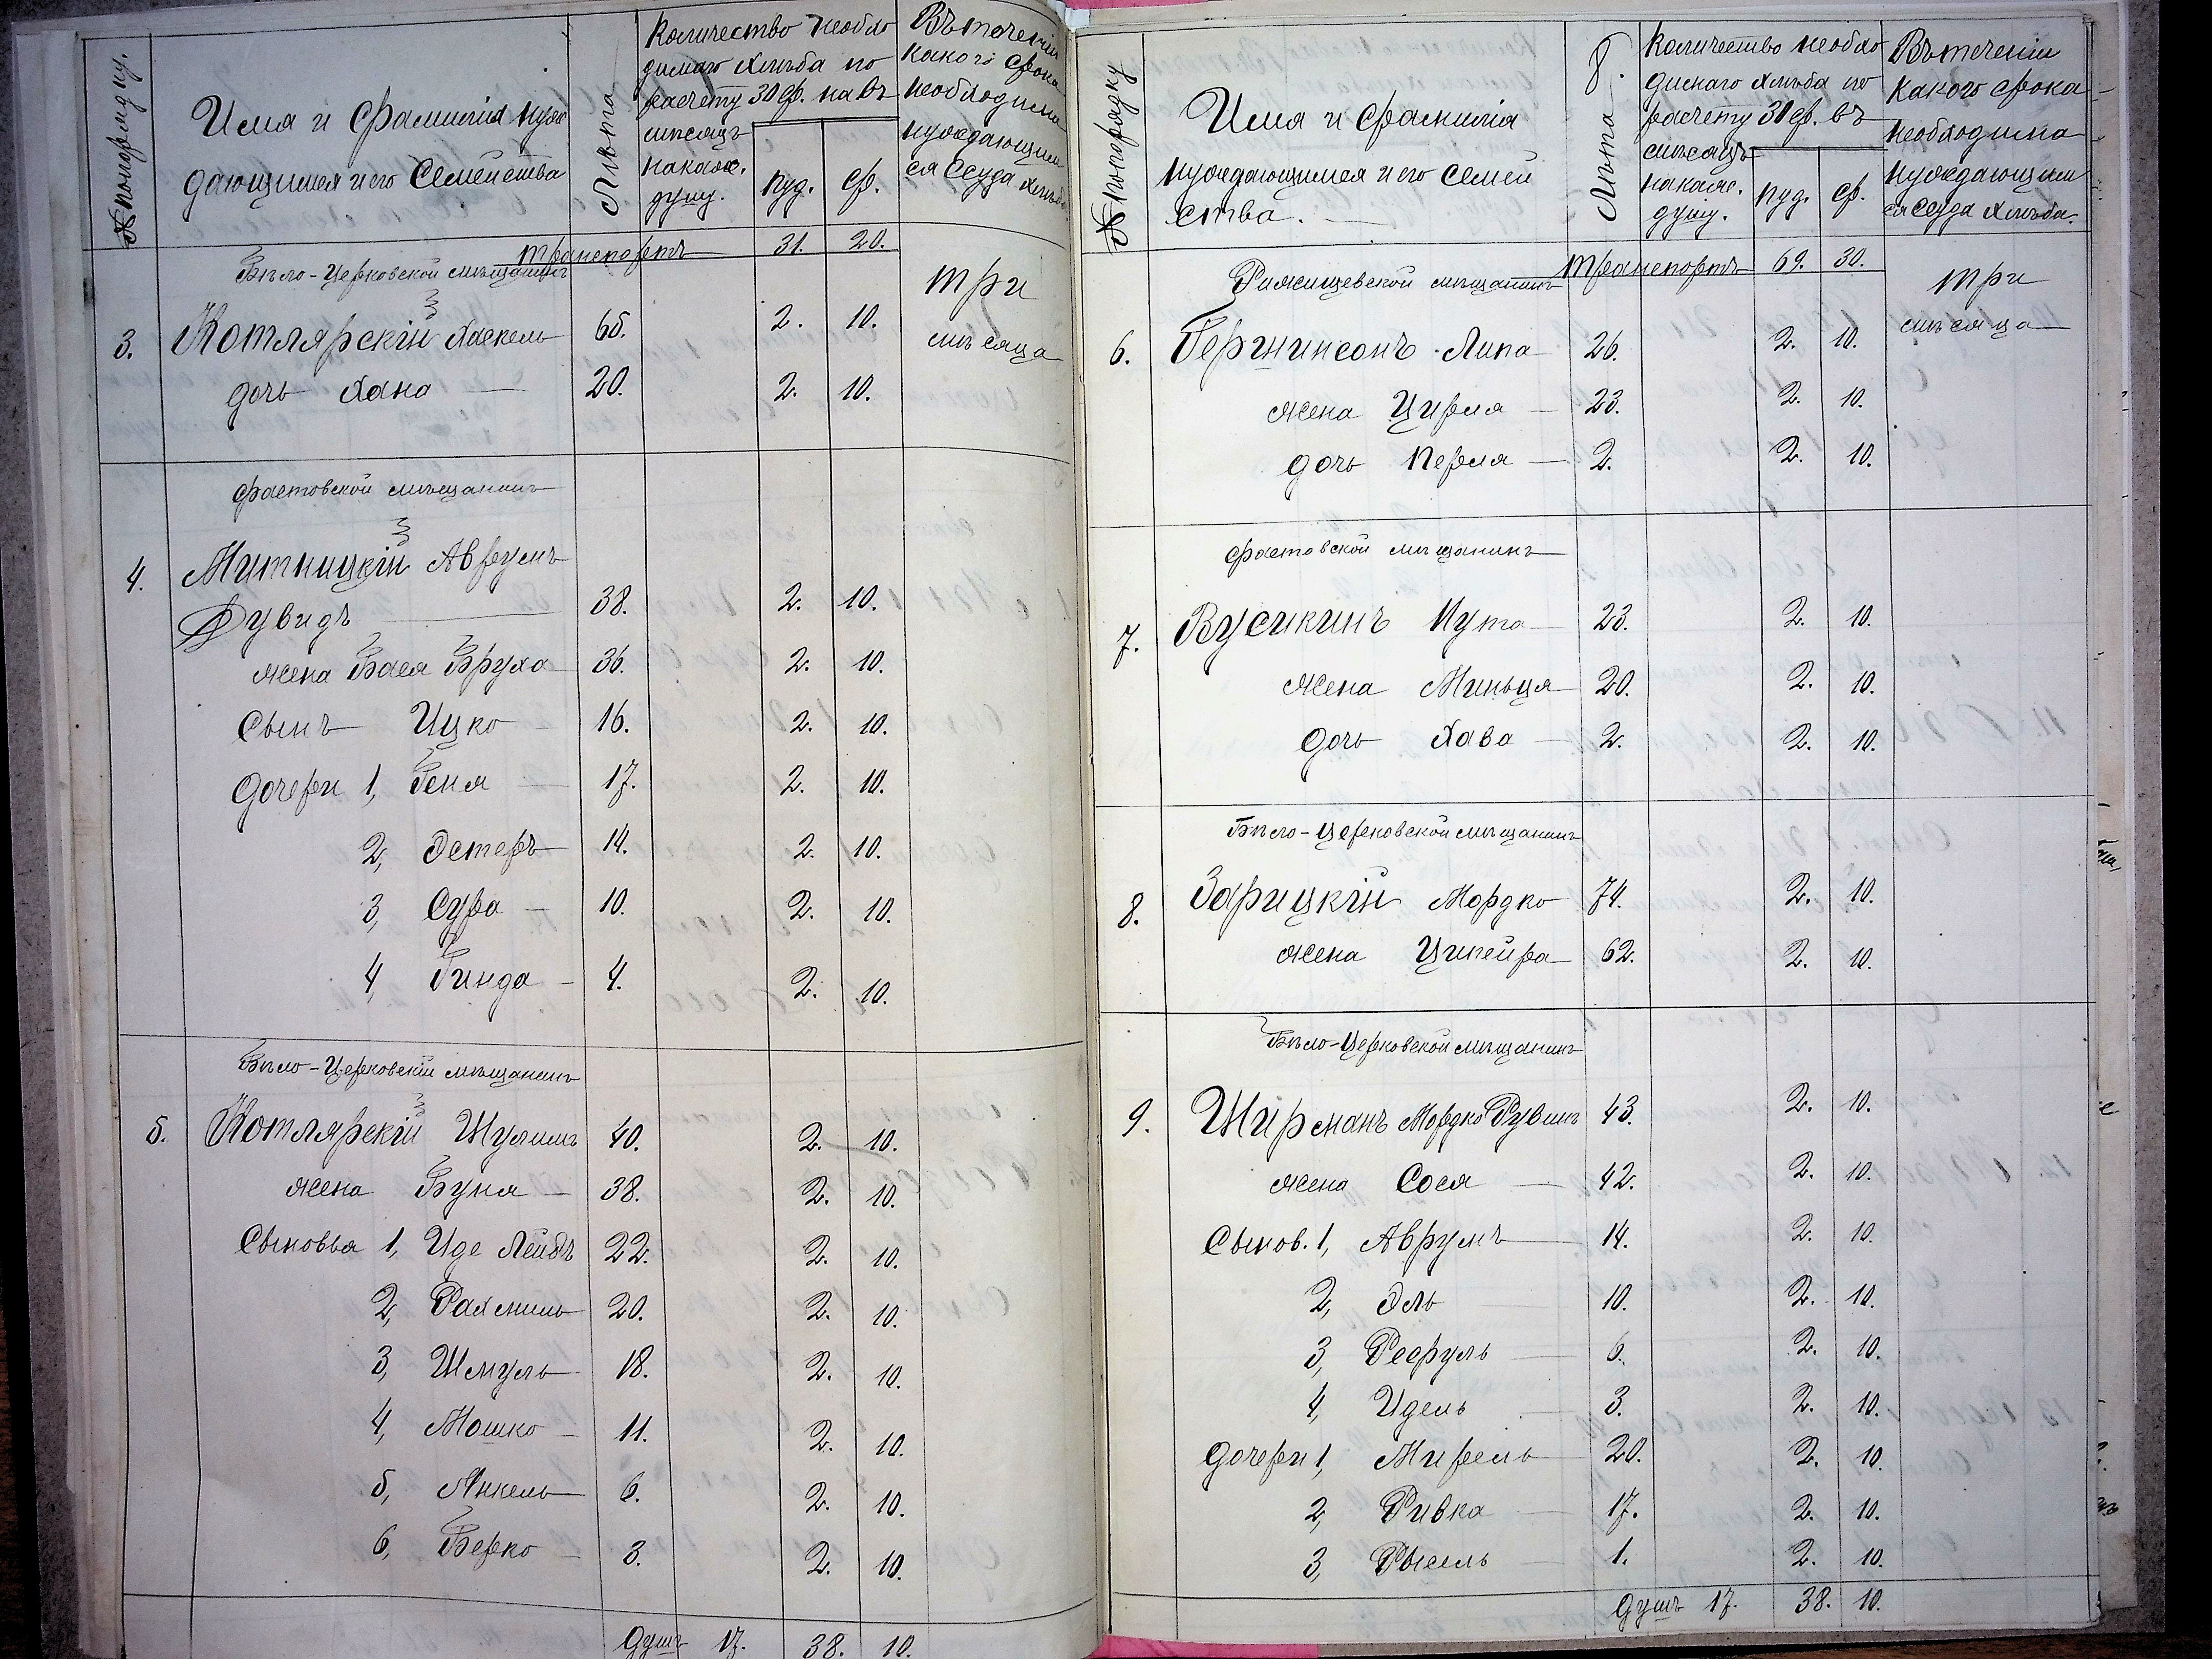 № по порядку.
Имя и Фамилия нуж
дающимся и его Семейства
Лѣта
Количество необхо
димаго хлѣба по
расчету 30 ф. на въ
мѣсяцъ
на кажд.
душу.
пуд.
ф.
Въ течении
какого срока
необходима
нуждающим
ся Ссуда хлѣба
Транспортъ 31. 20.
Бѣло-Церковской мѣщанинъ
3. Котлярскій Хаскель 65. 2. 10. три
мѣсяца
дочь Хана 20. 2. 10.
Фастовской мѣщанинъ
4. Митницкій Аврумъ
Дувидъ 38. 2. 10.
жена Бася Бруха 36. 2. 10.
Сынъ Ицко 16. 2. 10.
дочери 1, Геня 17. 2. 10.
2, Эстеръ 14. 2. 10.
3, Сура 10. 2. 10.
4, Гинда 4. 2. 10.
Бѣло-Церковскій мѣщанинъ
5. Котлярскій Шулимъ 40. 2. 10.
жена Буня 38. 2. 10.
Сыновья 1, Иде Лейбъ 22. 2. 10.
2, Рахмиль 20. 2. 10.
3, Шмуль 18. 2. 10.
4, Мошко 11. 2. 10.
5, Янкель 6. 2. 10.
6, Берко 3. 2. 10.
душъ 17. 38. 10.
8.
№ по порядку
Имя и Фамилія
нуждающимся и его Семей
ства.
Лѣта
Количество необхо
димаго хлѣба по
расчету 30 ф. въ
мѣсяцъ
на кажд.
душу.
пуд.
ф.
Въ течении
какого срока
необходима
нуждающим
ся Ссуда хлѣба.
Транспортъ 69. 30.
Ржищевской мѣщанинъ
три
мѣсяца
6. Гершинсонъ Липа 26. 2. 10.
жена Цирля 23. 2. 10.
дочь Перля 2. 2. 10.
Фастовской мѣщанинъ
7. Вусикинъ Нута 23. 2. 10.
жена Миньця 20. 2. 10.
дочь Хава 2. 2. 10.
Бѣло-Церковской мѣщанинъ
8. Зарицкій Мордко 74. 2. 10.
жена Ципейра 62. 2. 10.
Бѣло-Церковской мѣщанинъ
9. Ширманъ Мордко Рувинъ 43. 2. 10.
жена Сося 42. 2. 10.
Сынов. 1, Аврумъ 14. 2. 10.
2, Эль 10. 2. 10.
3, Рефуль 6. 2. 10.
4, Идель 3. 2. 10.
дочери 1, Мирель 20. 2. 10.
2, Ривка 17. 2. 10.
3, Рысель 1. 2. 10.
душъ 17. 38. 10.